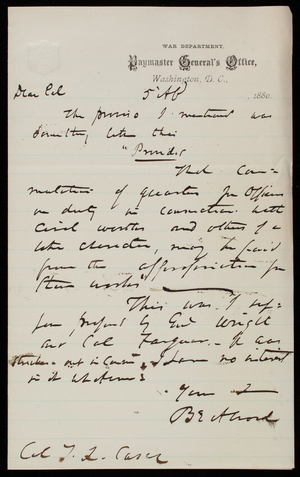 WAR DEPARTMENT,
Paymaster General's Office,
Washington, D. C.,
5" Ap 1880.
Dear Col
The proviso I mentioned was
something like this
"Provided
That Com-
mutation of quarters for Officers
on duty in connection with
Civil works and others of a
like character, may be paid
from the appropriation for
these works
This was I sup-
pose by Genl Wright
and Col - It was
out in Comm, I have no interest
in it whatever
Yours
B E
Col T. L. Casey